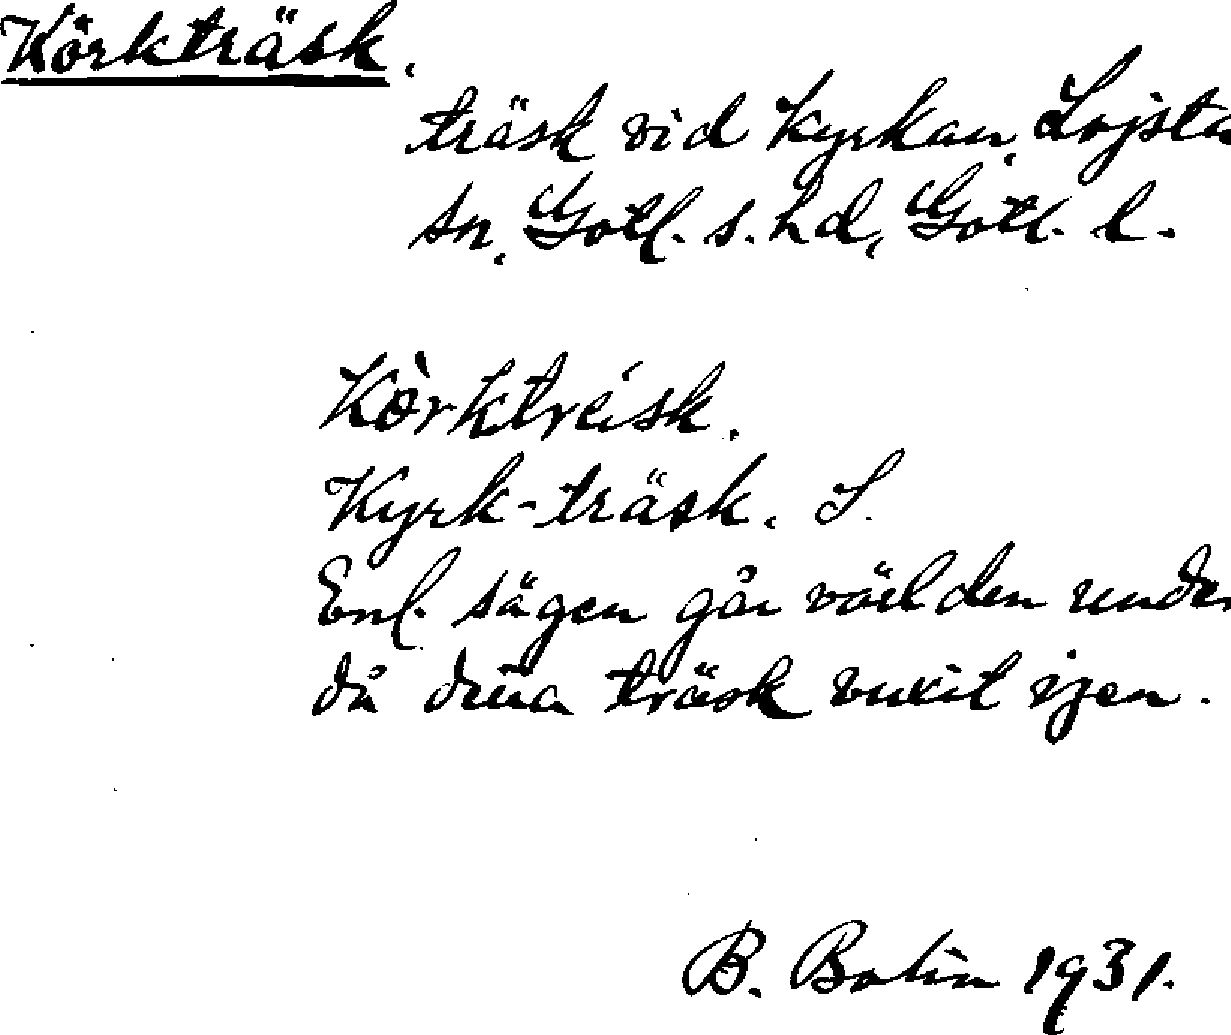 Körkträsk.
träsk vid kyrkan, Lojsta
sn, Gotl. s. hd, Gotl. l.
Kòrktreisk.
Kyrk-träsk. S.
Enl. sägen går världen under
då dessa träsk vuxit igen.
B. Bolin 1931.